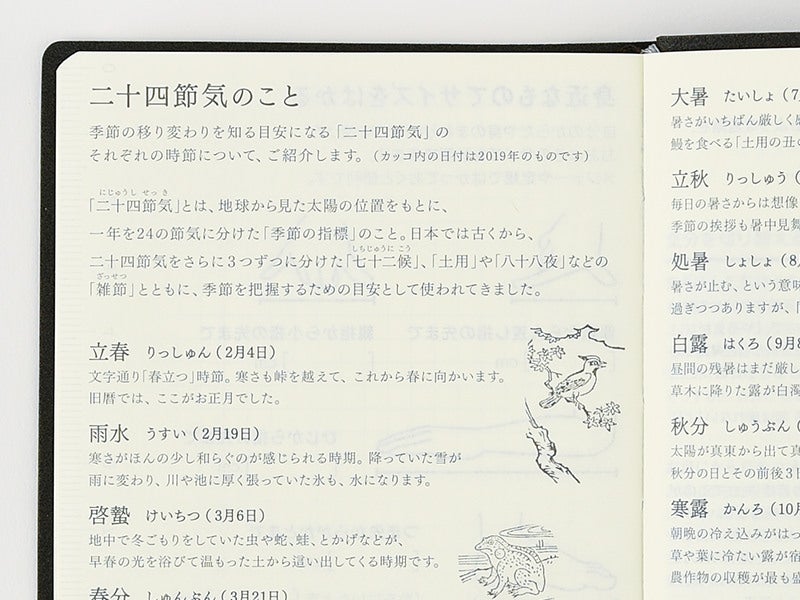 二十四節気のこと
季節の移り変わりを知る目安になる「二十四節気」の
それぞれの時節について、ご紹介します。(カッコ内の日付は2019年のものです)
にじゅうし せっ き
「二十四節気」とは、地球から見た太陽の位置をもとに、
一年を24の節気に分けた「季節の指標」のこと。日本では古くから、
しちじゅうに こう
二十四節気をさらに3つずつに分けた「七十二候」、「土用」や「八十八夜」などの
ざっせつ
「雑節」とともに、季節を把握するための目安として使われてきました。
立春 りっしゅん(2月4日)
文字通り「春立つ」時節。寒さも峠を越えて、これから春に向かいます。
旧暦では、ここがお正月でした。
雨水 うすい(2月19日)
寒さがほんの少し和らぐのが感じられる時期。降っていた雪が
雨に変わり、川や池に厚く張っていた氷も、水になります。
啓蟄 けいちつ(3月6日)
地中で冬ごもりをしていた虫や蛇、蛙、とかげなどが、
早春の光を浴びて温もった土から這い出してくる時期です。
春分 しゅんぶん(3月21日)
大暑 たいしょ(7
暑さがいちばん厳しく
鰻を食べる「土用の丑の
立秋 りっしゅう(
毎日の暑さからは想像
季節の挨拶も暑中見舞
処暑 しょしょ(8
暑さが止む、という意味
過ぎつつありますが、「
白露 はくろ(9月8
昼間の残暑はまだ厳し
草木に降りた露が白濁
秋分 しゅうぶん(
太陽が真東から出て真
秋分の日とその前後3日
寒露 かんろ(10月
朝晩の冷え込みがはっ
草や葉に冷たい露が宿
農作物の収穫が最も盛